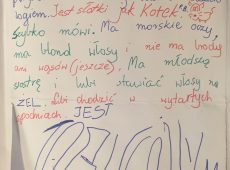 logiem. Jest słotki jak Kotek.
szybko mówi. Ma morskie oczy,
ma blond włosy i nie ma brody
ani wąsów (jeszcze). Ma młodszą
siostrę i lubi stawiać włosy na
ŻEL. Lubi chodzić w wytartych
spodniach. JEST